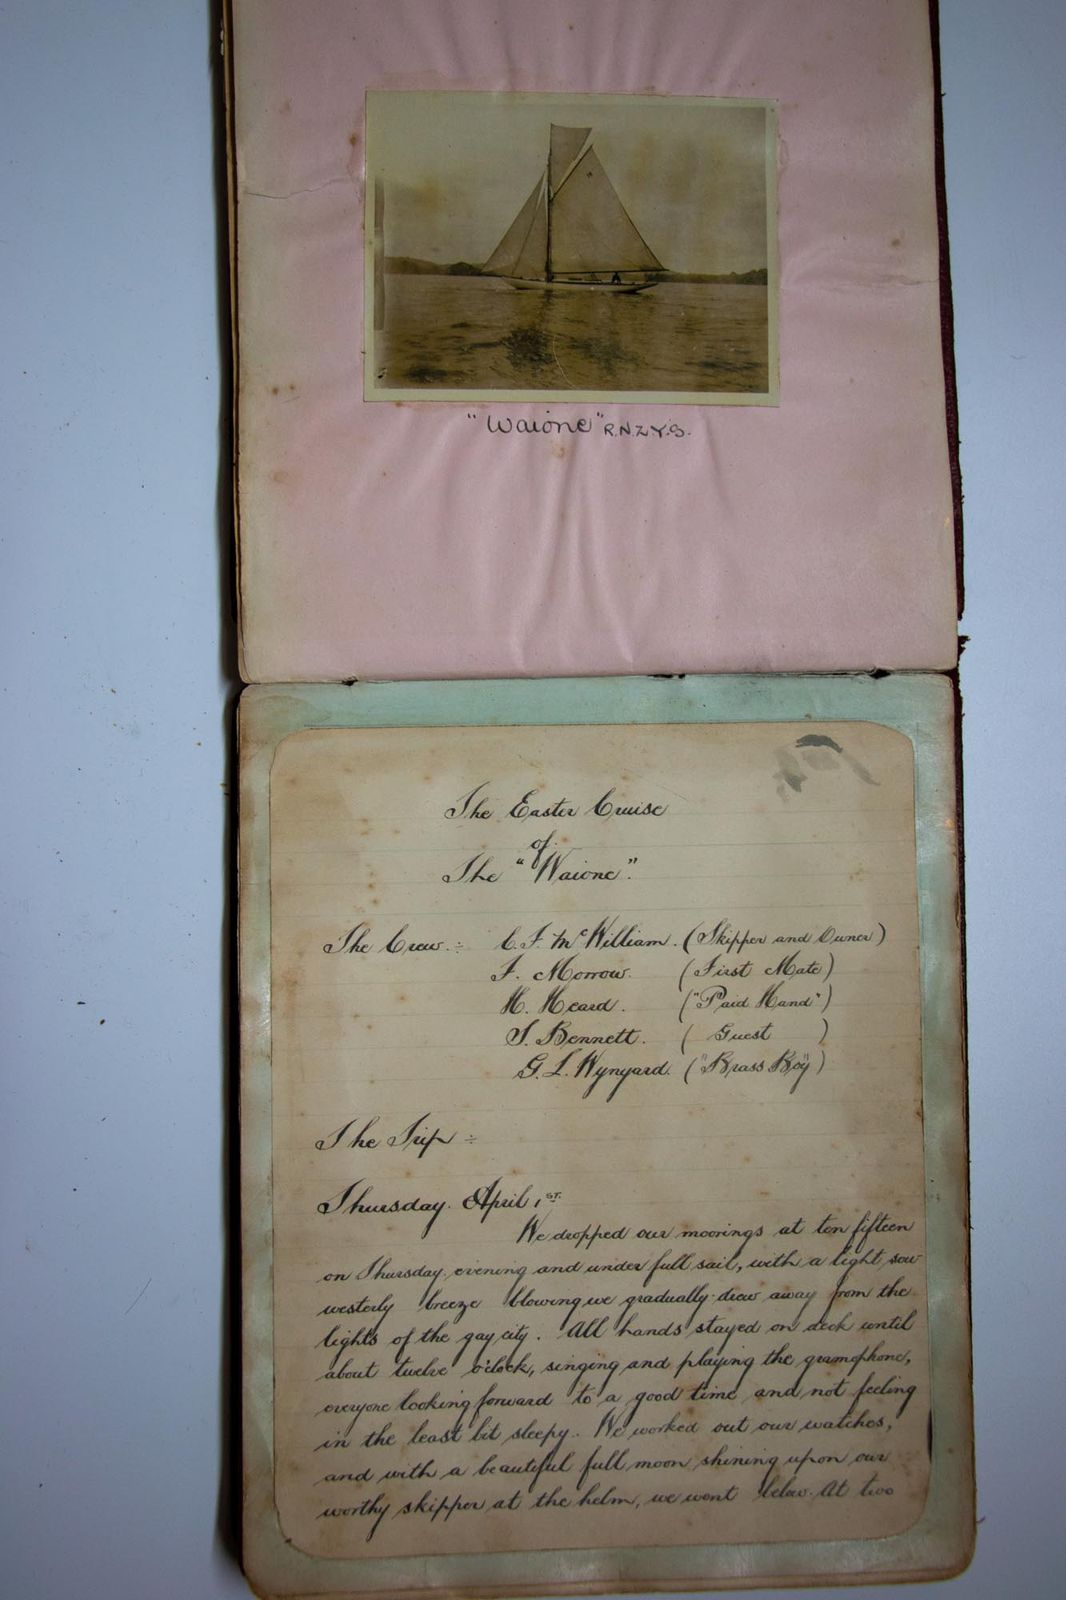 "Waione" R.N.Z.Y.S.
The Easter Cruise
of
The "Waione".
The Crew :- C. F. McWilliam. (Skipper and Owner)
F. Morrow. (First Mate)
H. Heard. ("Paid Hand")
T. Bennett. ( Guest )
G. L. Wynyard. ("Brass Boy")
The Trip :-
Thursday. April 1st.
We dropped our moorings at ten fifteen
on Thursday evening and under full sail, with a light sou-
westerly breeze blowing we gradually drew away from the
lights of the gay city. All hands stayed on deck until
about twelve o'clock, singing and playing the gramophone,
everyone looking forward to a good time and not feeling
in the least bit sleepy. We worked out our watches,
and with a beautiful full moon shining upon our
worthy skipper at the helm, we went below. At two